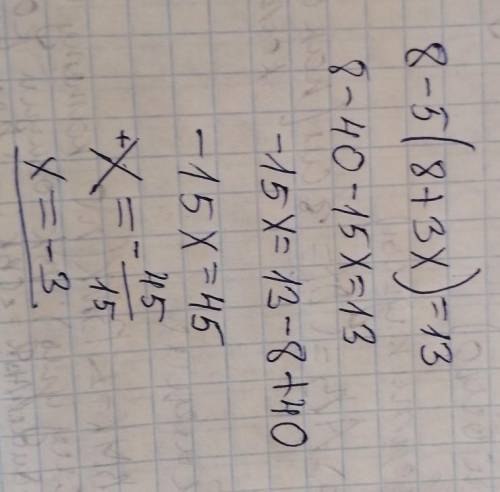 8-5(8+3x)=13
8-40-15x=13
-15x=13-8+40
-15x=45
x=-45/15
x=-3